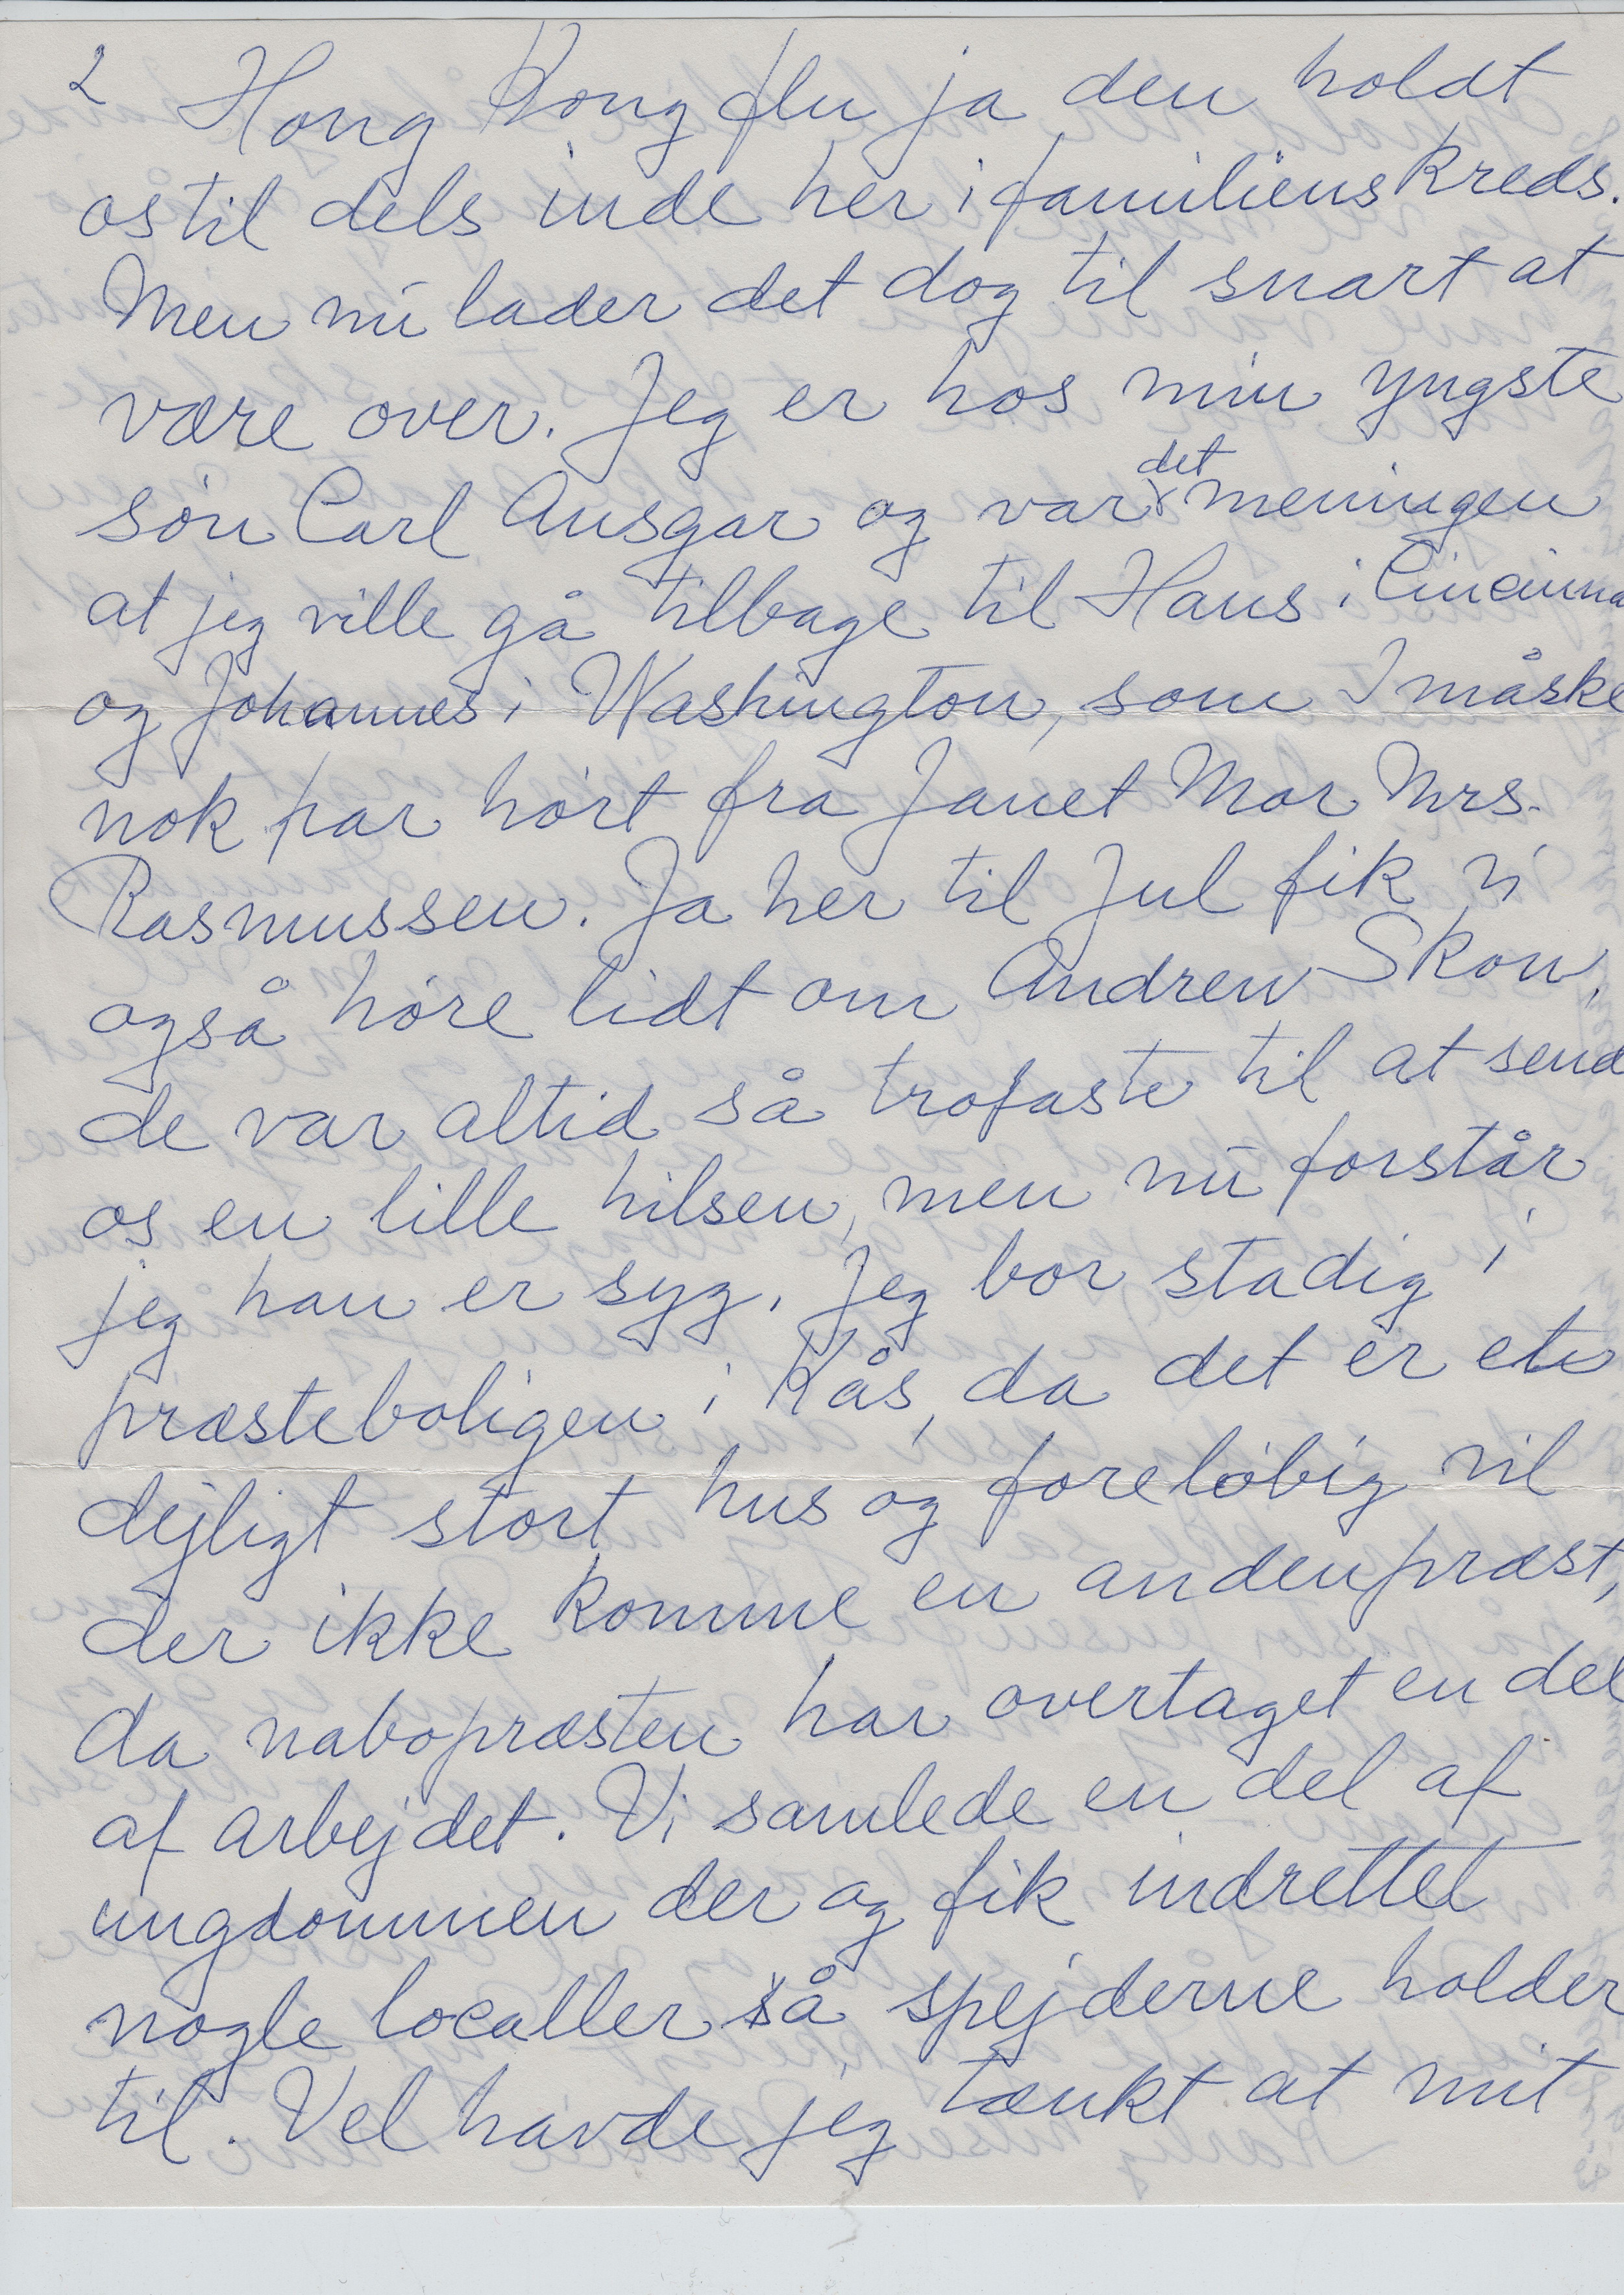 2 Hong Kong flu ja den holdt
os til dels inde her i familiens kreds.
Men nu lader det dog til snart at
være over. Jeg er hos min yngste
søn Carl Ansgar og var det meningen
at jeg ville gå tilbage til Hans i Cincinna
og Johannes i Washington, som I måske
nok har hørt fra Janet Mor Mrs.
Rasmussen. Ja her til Jul fik vi
også høre lidt om Andrew Skow,
de var altid så trofaste til at send
os en lille hilsen, men nu forstår
jeg han er syg. Jeg bor stadig i
præsteboligen i Kås, da det er et
dejligt stort hus og foreløbig vil
der ikke komme en anden præst,
da nabopræsten har overtaget en del
af arbejdet. Vi samlede en del af
ungdommen der og fik indrettet
nogle localler så spejderne holder
til. Vel havde jeg tænkt at mit